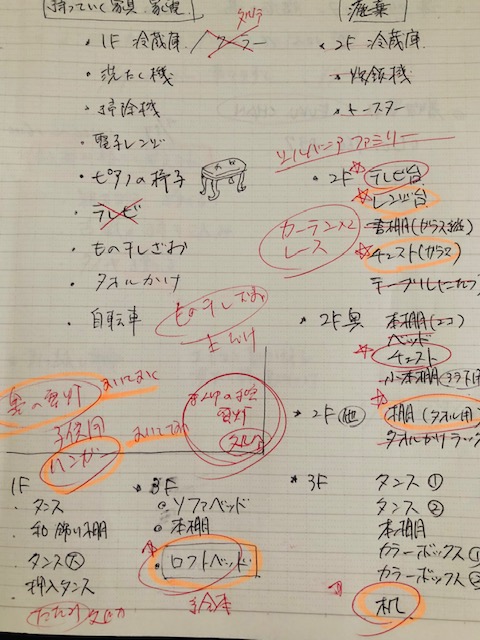 持っていく家具、家電
・1F 冷蔵庫
クーラー
・洗たく機
・掃除機
・電子レンジ
・ピアノの椅子
・テレビ
・もの干しざお
・タオルかけ
・自転車
もの干しざお
廃棄
・2F 冷蔵庫
・炊飯機
・トースター
シルバニアファミリー
・2F テレビ台
レンジ台
書棚(ガラス
チェスト(ガラス
カーテン×2
レース
・2F奥 本棚(2コ)
ベッド
チェスト
小本棚
・2F(他) 棚(タオル用)
タオルかけラック
奥の電灯 おいておく
子供用
ハンガー おいておく
電灯
1F
・タンス
・和 飾り棚
・タンス大
・押入タンス
・3F
・ソファベッド
・本棚
・ロフトベッド
・3F タンス①
タンス②
本棚
カラーボックス①
カラーボックス②
机